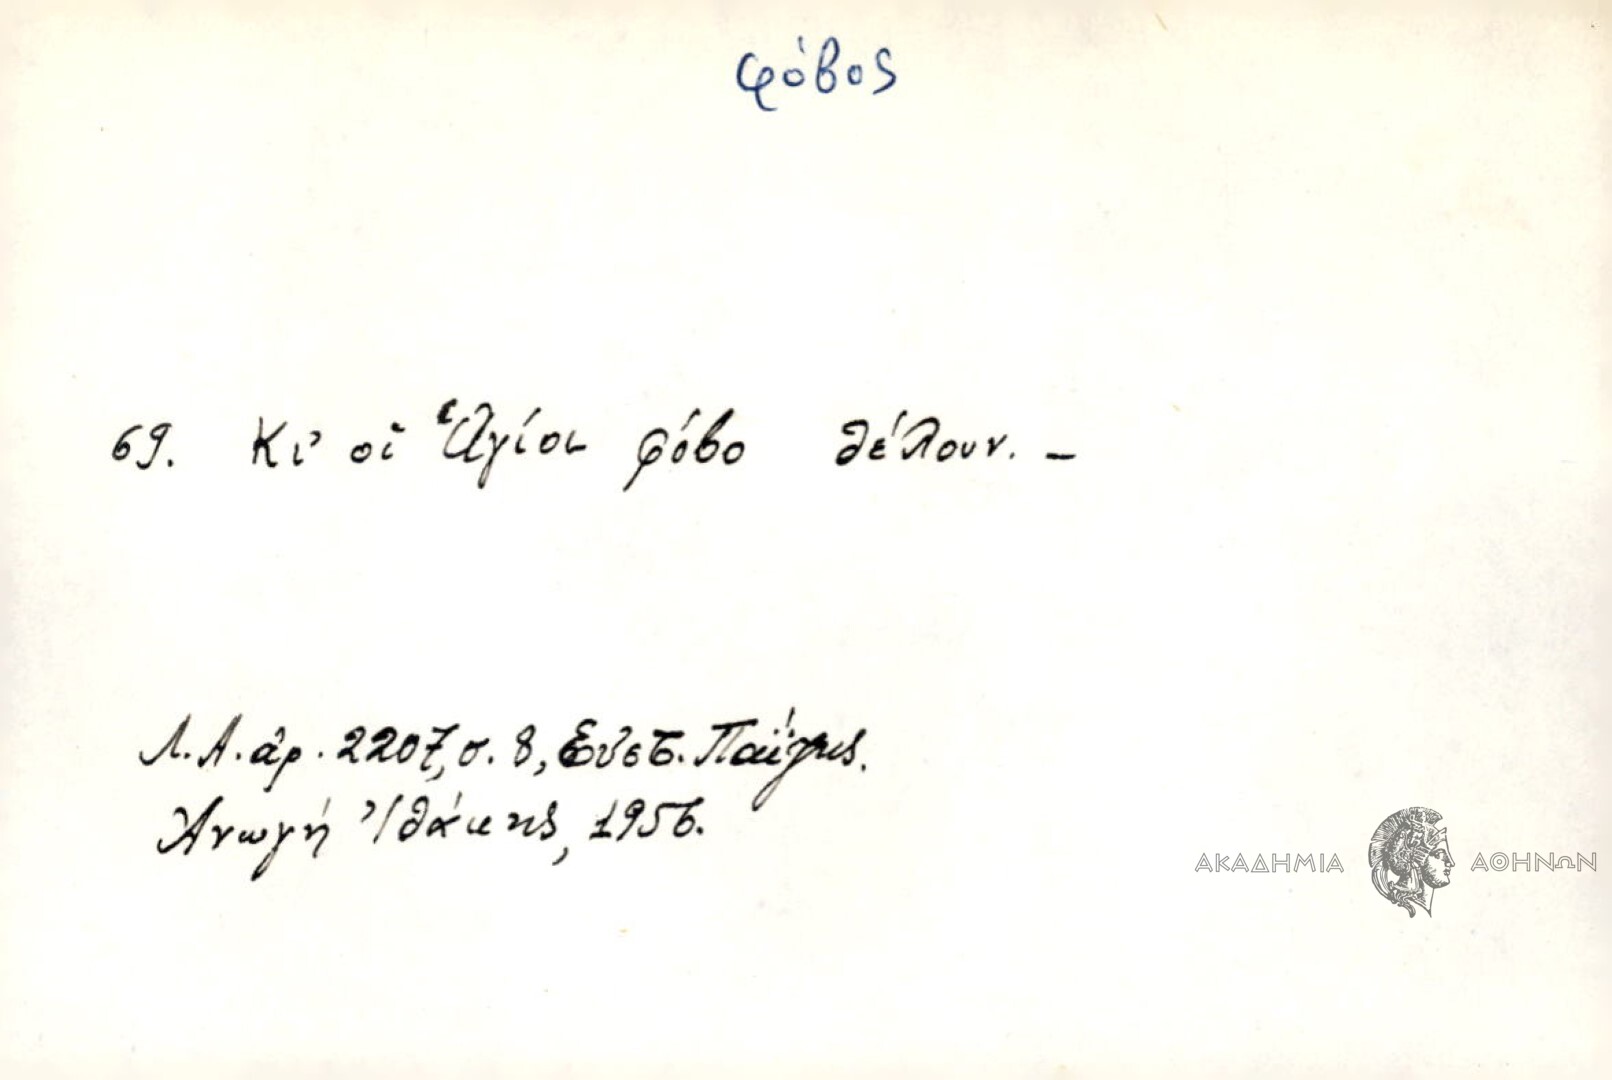 φόβος
69. Κι' οἱ Ἁγίοι φόβο θέλουν. –
Λ.Α. ἀρ. 2207, σ. 8, Εὐστ. Παΐζης.
Ἀνωγή Ἰθάκης, 1956.
ΑΚΑΔΗΜΙΑ ΑΘΗΝΩΝ